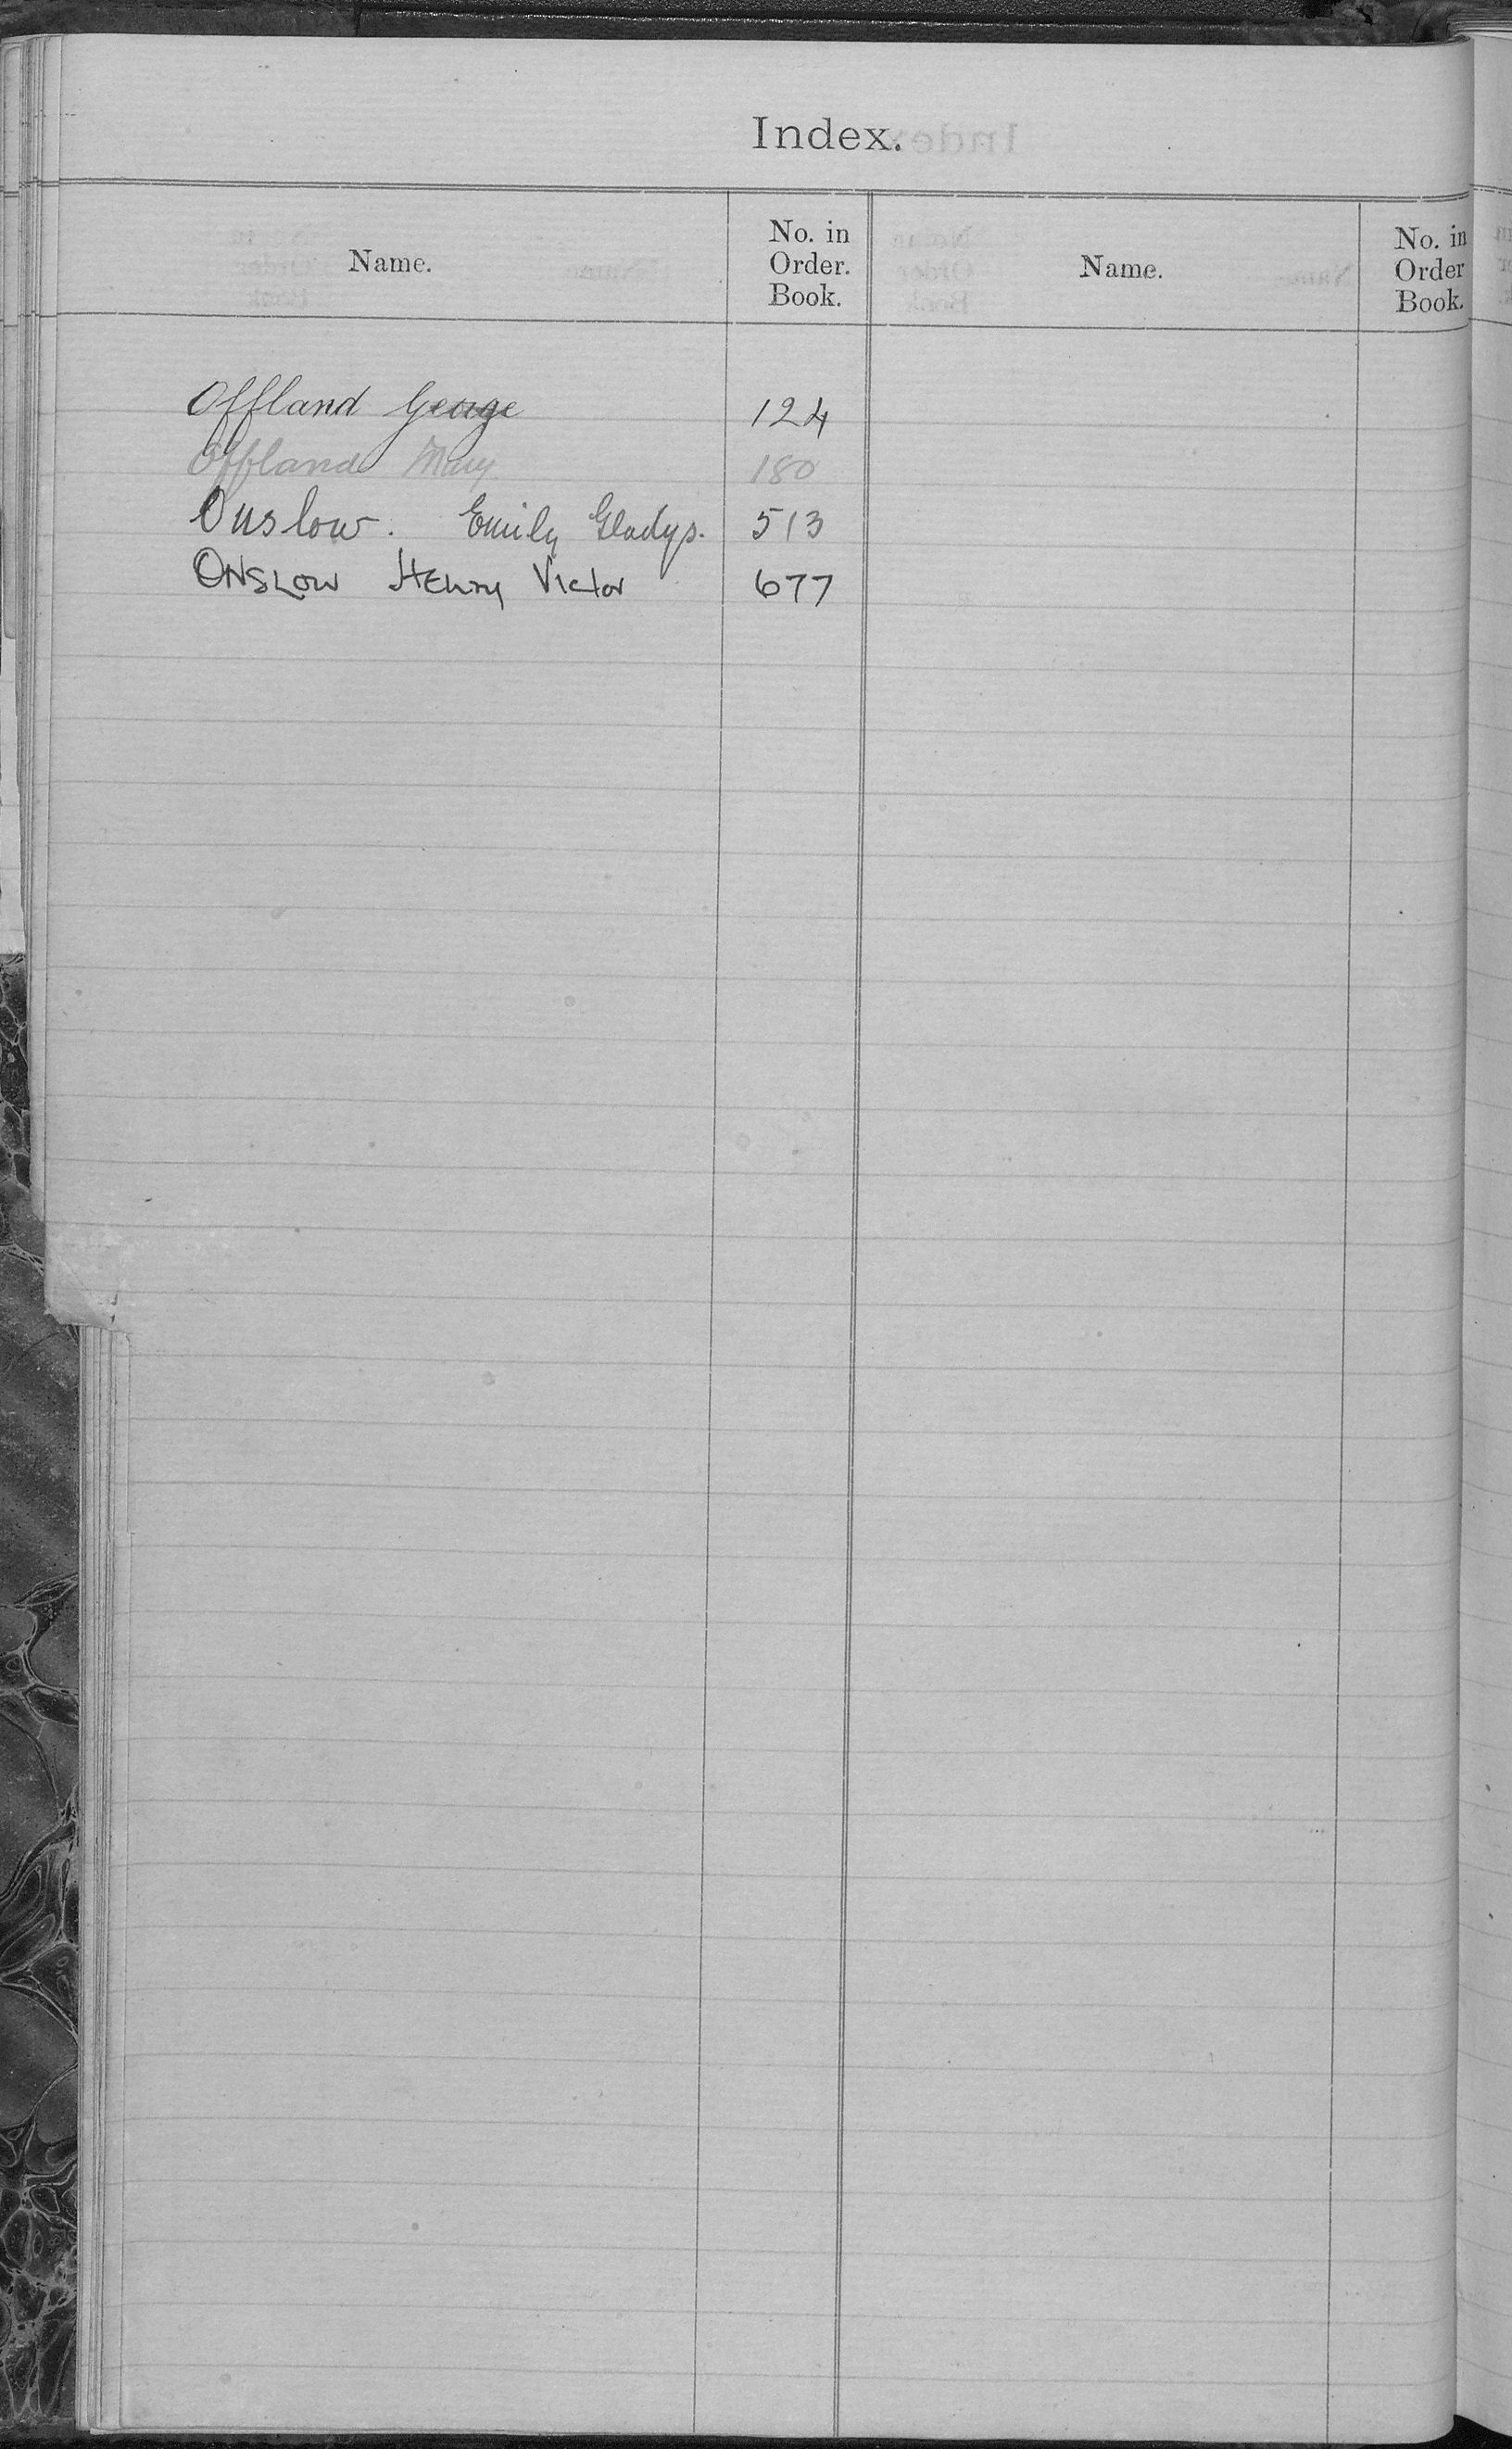 Index.
Name.
No. in
Order.
Book.
Name.
No. in
Order
Book.
Offland George 124
Offland Mary 180
Onslow. Emily Gladys. 513
ONSLOW HENry Victor 677